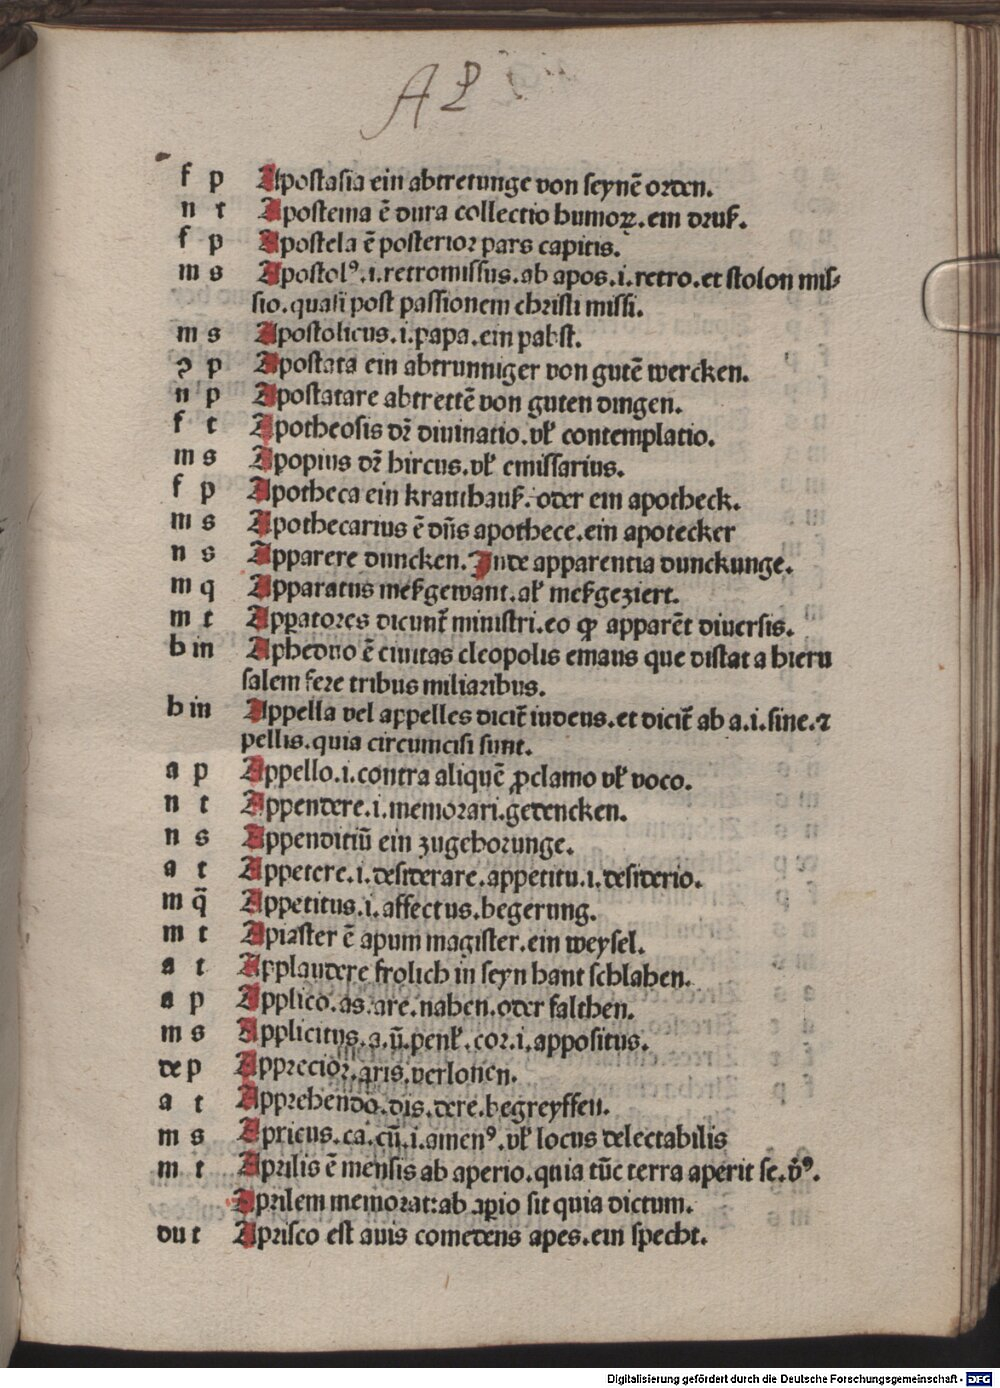 AP
f p Apostasia ein abtretunge von seynē orden.
n t Apostema ē dura collectio humoꝝ. ein druß.
f p Apostela ē posterior pars capitis.
m s Apostolꝰ.i.retromissus.ab apos.i.retro.et stolon mis-
sio.quasi post passionem christi missi.
m s Apostolicus.i.papa.ein pabst.
ꝯ p Apostata ein abtrunniger von gutē wercken.
n p Apostatare abtrettē von guten dingen.
f t Apotheosis dr̄ diuinatio.vł contemplatio.
m s Apopius dr̄ hircus.vł emissarius.
f p Apotheca ein krauthauß.oder ein apotheck.
m s Apothecarius ē dn̄s apothece.ein apotecker
n s Apparere duncken.Inde apparentia dunckunge.
m q Apparatus meßgewant.al' meßgeziert.
m t Apꝑatores dicunt̄ ministri.eo ꝙ apparēt diuersis.
b in Aphedno ē ciuitas cleopolis emaus que distat a hieru
salem fere tribus miliaribus.
b in Appella vel appelles dicit̄ iudeus.et dicit̄ ab a.i.sine.⁊
pellis.quia circumcisi sunt.
a p Appello.i.contra aliquē ꝓclamo vł voco.
n t Appendere.i.memorari.gedencken.
n s Appenditiū ein zugehorunge.
a t Appetere.i.desiderare.appetitu.i.desiderio.
m q̄ Appetitus.i.affectus.begerung.
m t Apiaster ē apum magister.ein weysel.
a t Applaudere frolich in seyn hant schlahen.
a p Applico.as.are.nahen.oder falthen.
m s Applicitus.a.ū.penł.cor.i.appositus.
de p Apprecior.aris.verlonen.
a t Apprehendo.dis.dere.begreyffen.
m s Apricus.ca.cū.i.amenꝰ.vł locus delectabilis
m t Aprilis ē mensis ab aperio.quia tūc terra aperit se.v̄ꝰ.
Aprilem memorat:ab aꝑio sit quia dictum.
du t Aprisco est auis comedens apes.ein specht.
Digitalisierung gefördert durch die Deutsche Forschungsgemeinschaft - DFG